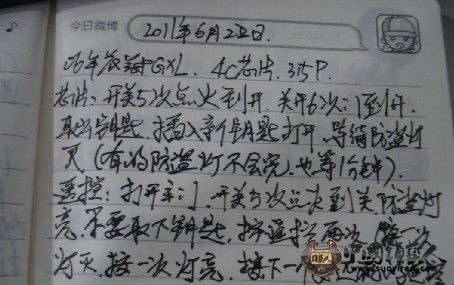 今日微博
2011年6月22日.
06年花冠GXL. 4C芯片. 315P.
芯片:开关5次点火到开.关开6次门到开.
取出钥匙.插入新钥匙打开.等待防盗灯
灭(有的防盗灯不会亮.也等1分钟).
遥控:打开车门.开关5次点火到关.防盗灯
亮.不要取下钥匙,按遥控两次.按一次
灯灭.按一次灯亮.按下一
www.suoyiren.com